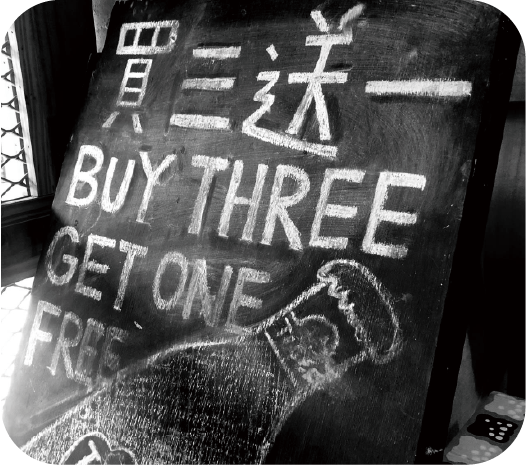 買三送一
BUY THREE
GET ONE
FREE